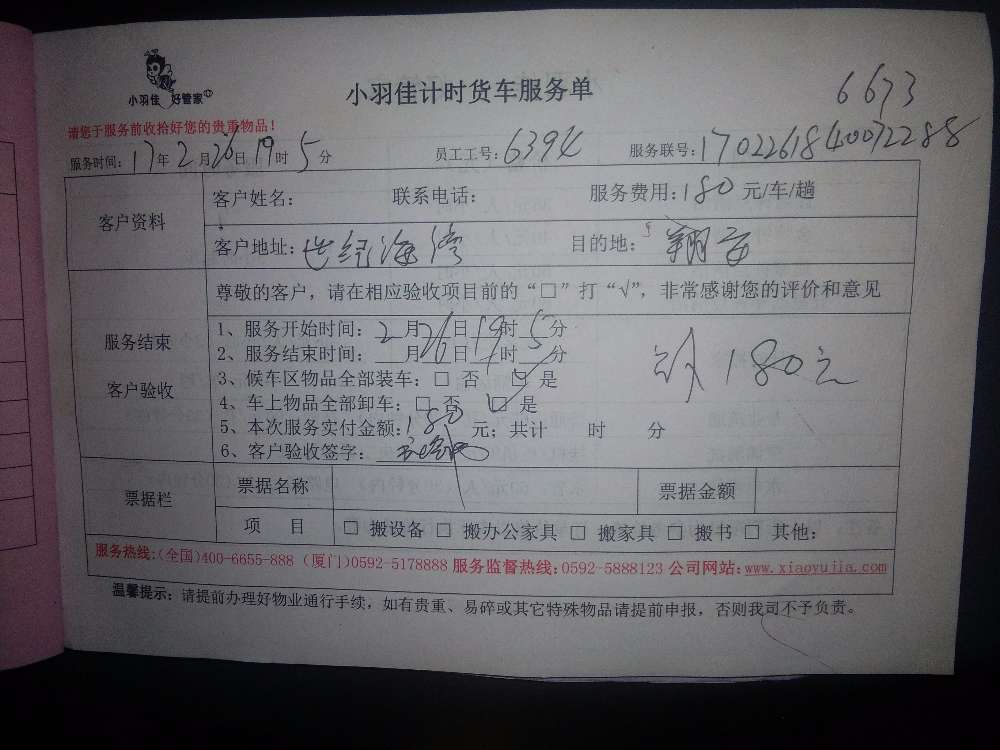 小羽佳 好管家
小羽佳计时货车服务单
6673
请您于服务前收拾好您的贵重物品!
服务时间: 17年2月26日19时5分 员工工号: 6394 服务联号: 1702261840072288
客户资料
客户姓名: 联系电话: 服务费用: 180 元/车/趟
客户地址: 世纪海湾 目的地: 翔安
尊敬的客户,请在相应验收项目前的“□”打“√”,非常感谢您的评价和意见
服务结束
客户验收
1、服务开始时间: 2月26日19时5分
2、服务结束时间: 月 日 时 分
3、候车区物品全部装车: □ 否 □ 是
4、车上物品全部卸车: □ 否 □ 是
5、本次服务实付金额: 180 元; 共计 时 分
6、客户验收签字:
180元
票据栏
票据名称 票据金额
项 目 □ 搬设备 □ 搬办公家具 □ 搬家具 □ 搬书 □ 其他:
服务热线:(全国)400-6655-888 (厦门)0592-5178888 服务监督热线:0592-5888123 公司网站:www.xiaoyujia.com
温馨提示: 请提前办理好物业通行手续,如有贵重、易碎或其它特殊物品请提前申报,否则我司不予负责。